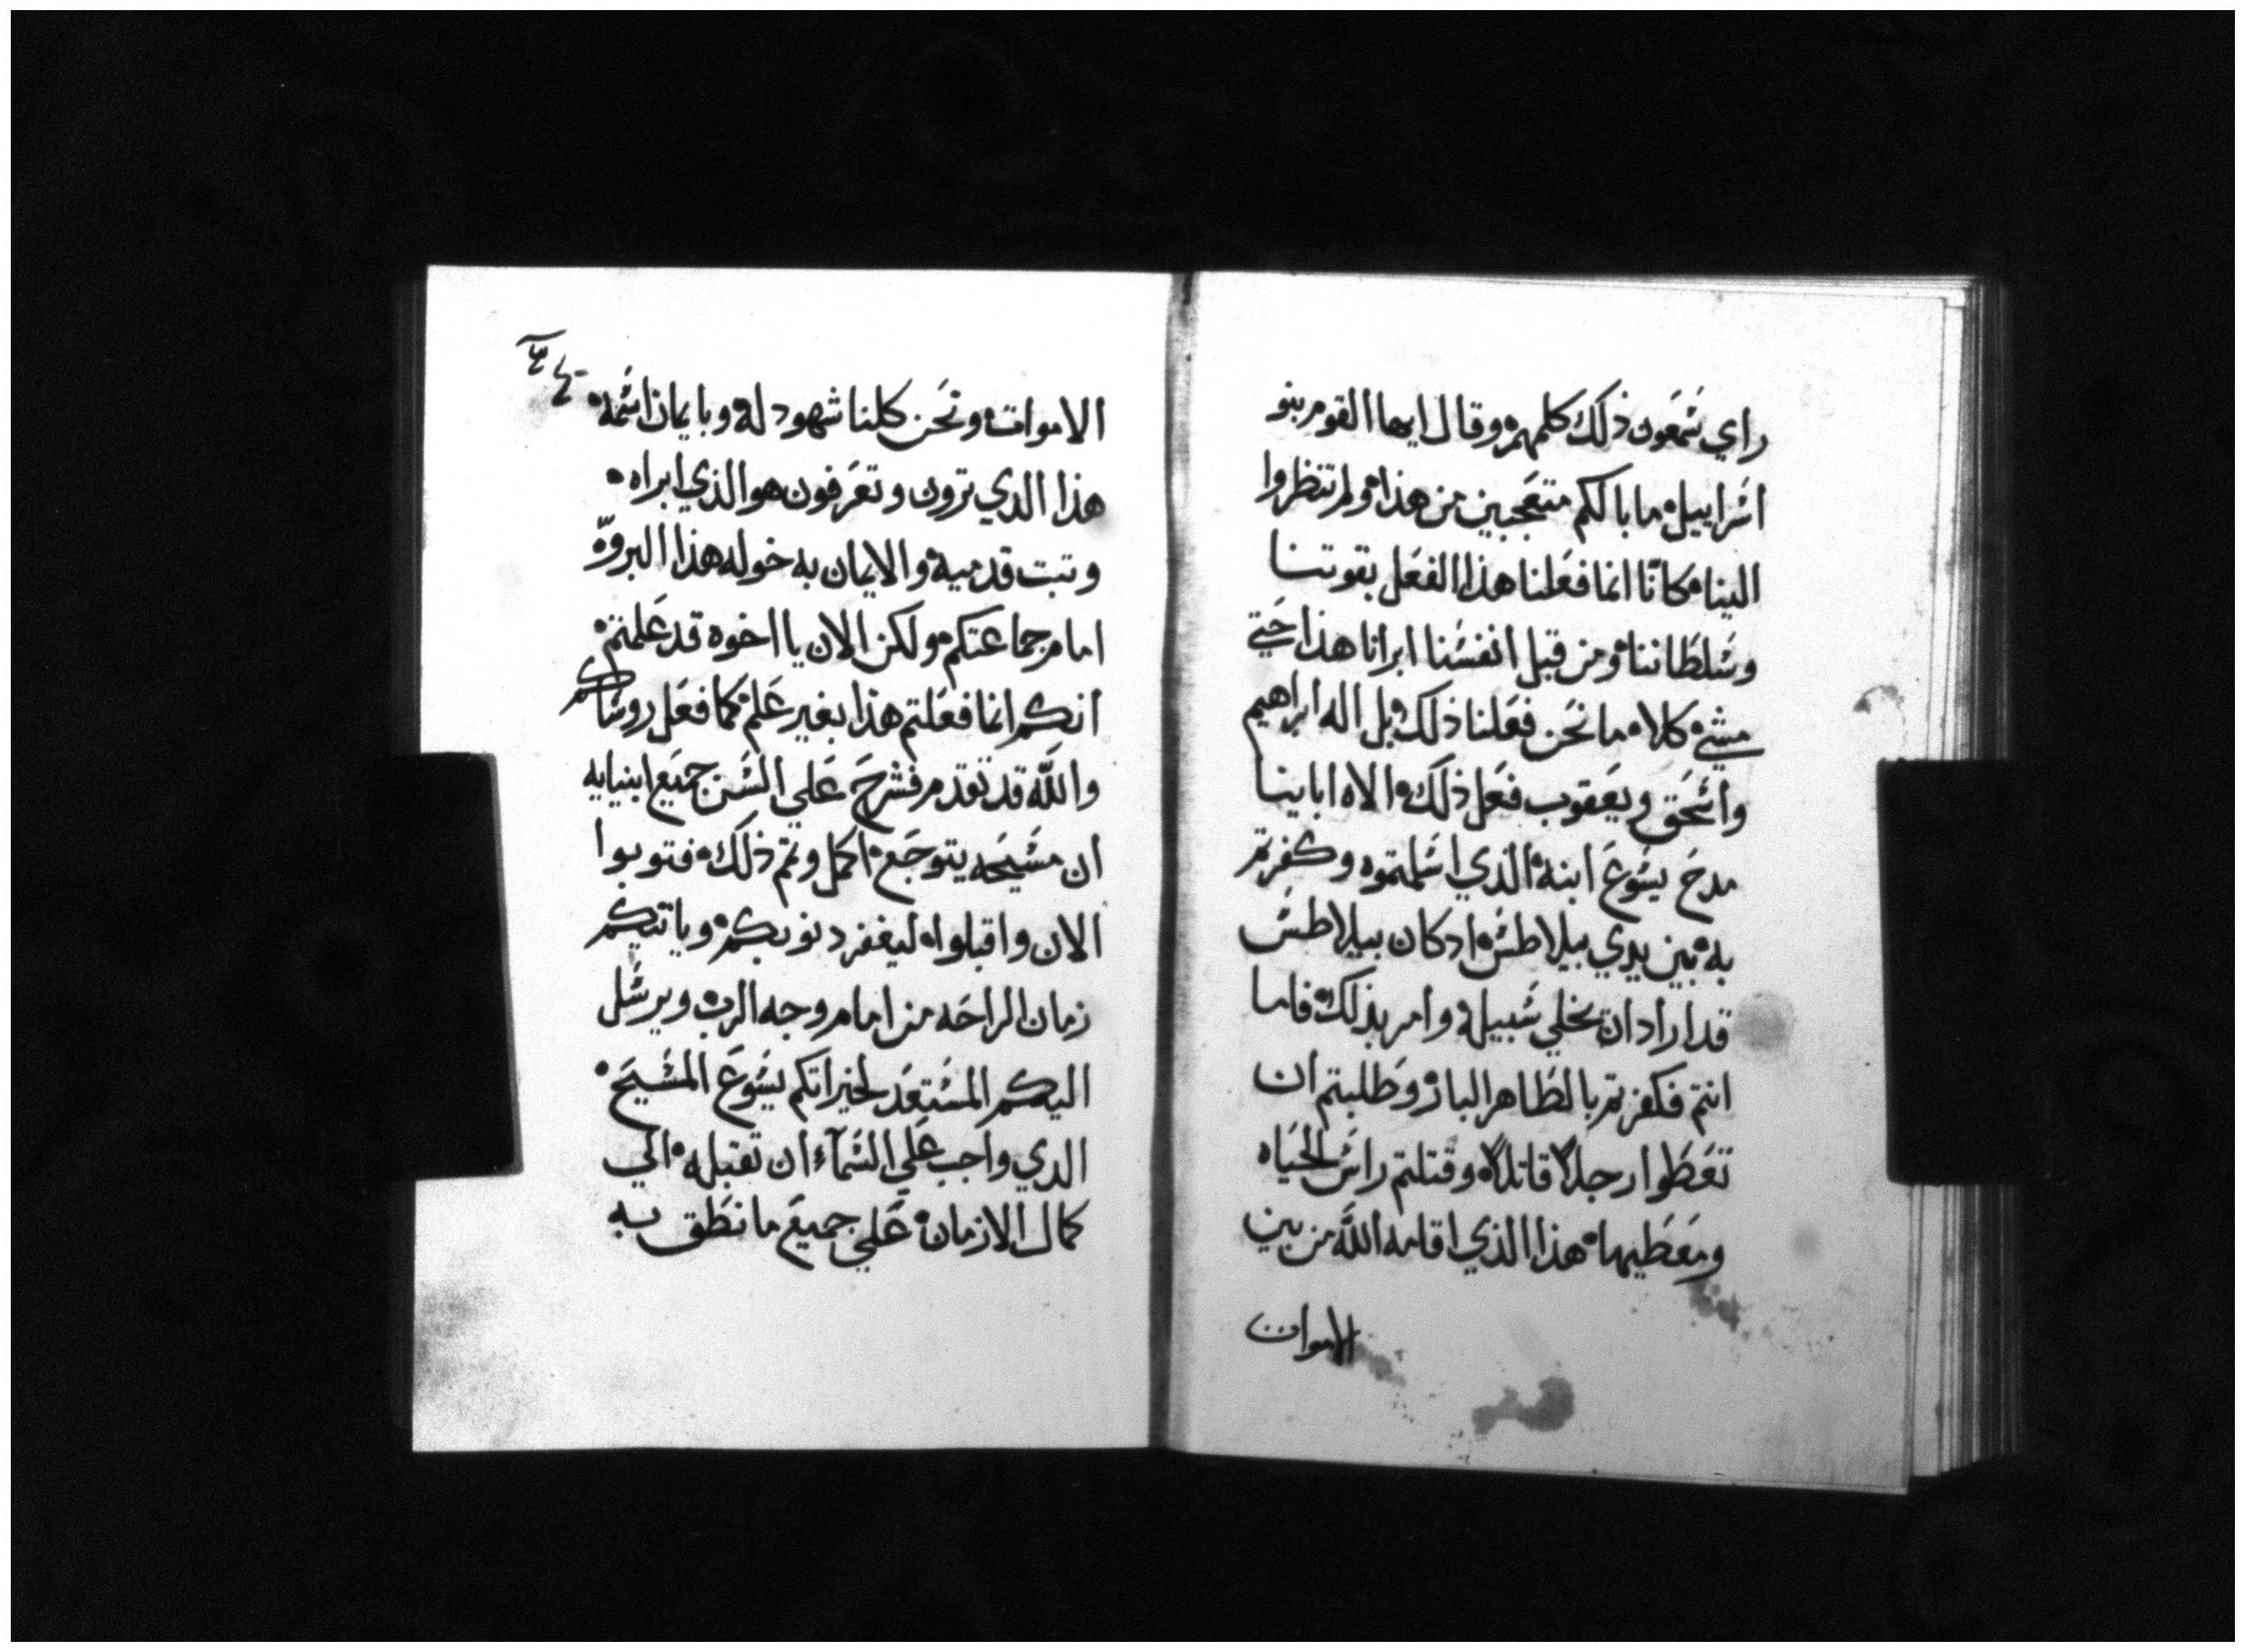 راي شمعون ذلك كلمهم وقال ايها القوم بنو
اسراييل ما بالكم متعجبين من هذا ولم تنظروا
الينا كانّا انما فعلنا هذا الفعل بقوتنا
وسلطاننا ومن قبل انفسنا ابرانا هذا حتي
مشي كلا ما نحن فعلنا ذلك بل اله ابراهيم
واسحق ويعقوب فعل ذلك الاه اباينا
مدح يسوع ابنه الذي اسلمتموه وكفرتم
به بين يدي بيلاطس ادكان بيلاطس
قد اراد ان يخلي سبيله وامر بذلك فاما
انتم فكفرتم بالطاهر البار وطلبتم ان
تعطوا رجلا قاتلا وقتلتم راس الحياه
ومعطيها هذا الذي اقامه الله من بين
الاموات
الاموات ونحن كلنا شهود له وبايمان اسمه
هذا الدي ترون وتعرفون هو الذي ابراه
وتبت قدميه والايمان به خوله هذا البروّه
امام جماعتكم ولكن الان يا اخوه قد علمتم
انكم انما فعلتم هذا بغير علم كما فعل روساكم
والله قد تقدم فشرح علي السن جميع ابنيايه
ان مسيحه يتوجع اكمل وتم ذلك فتوبوا
الان واقبلوا ليغفر دنوبكم وياتيكم
زمان الراحه من امام وجه الرب ويرسل
اليكم المستعد لخيراتكم يسوع المسيح
الدي واجب علي السماء ان تقبله الي
كمال الازمان علي جميع ما نطق به